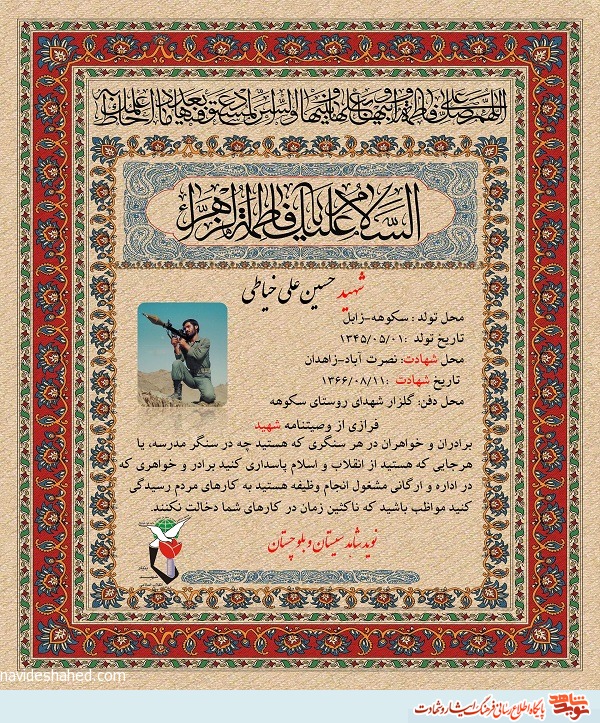 اللهم صل علی فاطمة و ابیها و بعلها و بنیها و السر المستودع فیها بعدد ما احاط به علمک
السلام علیک یا فاطمة الزهرا
شهید حسین علی خیاطی
محل تولد : سکوهه-زابل
تاریخ تولد :۱۳۴۵/۰۵/۰۱
محل شهادت: نصرت آباد-زاهدان
تاریخ شهادت :۱۳۶۶/۰۸/۱۱
محل دفن: گلزار شهدای روستای سکوهه
فرازی از وصیتنامه شهید
برادران و خواهران در هر سنگری که هستید چه در سنگر مدرسه، یا
هرجایی که هستید از انقلاب و اسلام پاسداری کنید برادر و خواهری که
در اداره و ارگانی مشغول انجام وظیفه هستید به کارهای مردم رسیدگی
کنید مواظب باشید که ناکثین زمان در کارهای شما دخالت نکنند.
نوید شاهد سیستان و بلوچستان
navideshahed.com
نوید شاهد پایگاه اطلاع رسانی فرهنگ ایثار و شهادت